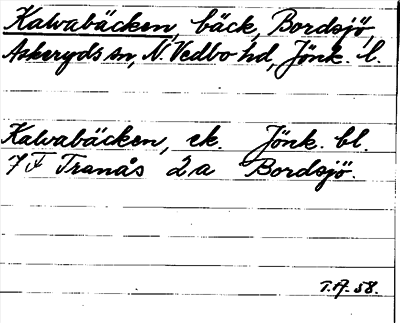 Kalvabäcken, bäck, Bordsjö,
Askeryds sn, N. Vedbo hd, Jönk. l.
Kalvabäcken, ek. Jönk. bl.
7 V Tranås 2a Bordsjö.
T.A. 58.